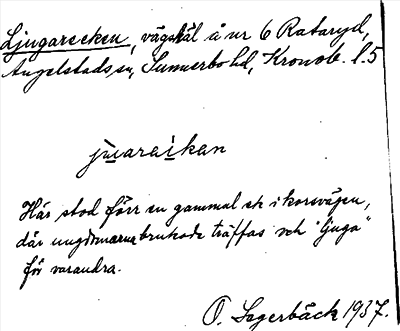 Ljugareeken, vägskäl å nr 6 Rataryd,
Angelstads sn, Sunnerbo hd, Kronob. l. 5
juaraikan
Här stod förr en gammal ek i korsvägen,
där ungdomarna brukade träffas och "ljuga"
för varandra.
O. Lagerbäck 1937.